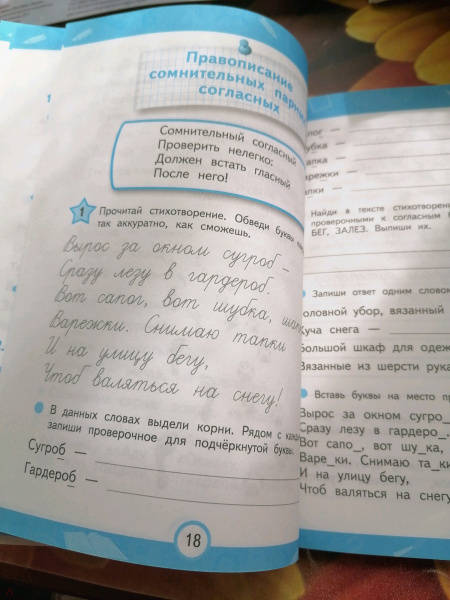 Правописание
сомнительных парных
согласных
Сомнительный согласный
Проверить нелегко:
Должен встать гласный
После него!
1 Прочитай стихотворение. Обведи буквы
так аккуратно, как сможешь.
Вырос за окном сугроб –
Сразу лезу в гардероб.
Вот сапог, вот шубка,
Варежки. Снимаю тапки
И на улицу бегу,
Чтоб валяться на снегу!
В данных словах выдели корни. Рядом с
запиши проверочное для подчёркнутой буквы.
Сугроб –
Гардероб –
18
Найди в тексте
проверочными к согласным
БЕГ, ЗАЛЕЗ. Выпиши их.
Запиши ответ одним словом
головной убор, вязанный
Куча снега –
Большой шкаф для
Вязанные из шерсти
Вставь буквы на место
Вырос за окном сугро_
Сразу лезу в гардеро_.
Вот сапо_, вот шу_ка,
Варе_ки. Снимаю та_ки
И на улицу бегу,
Чтоб валяться на снегу